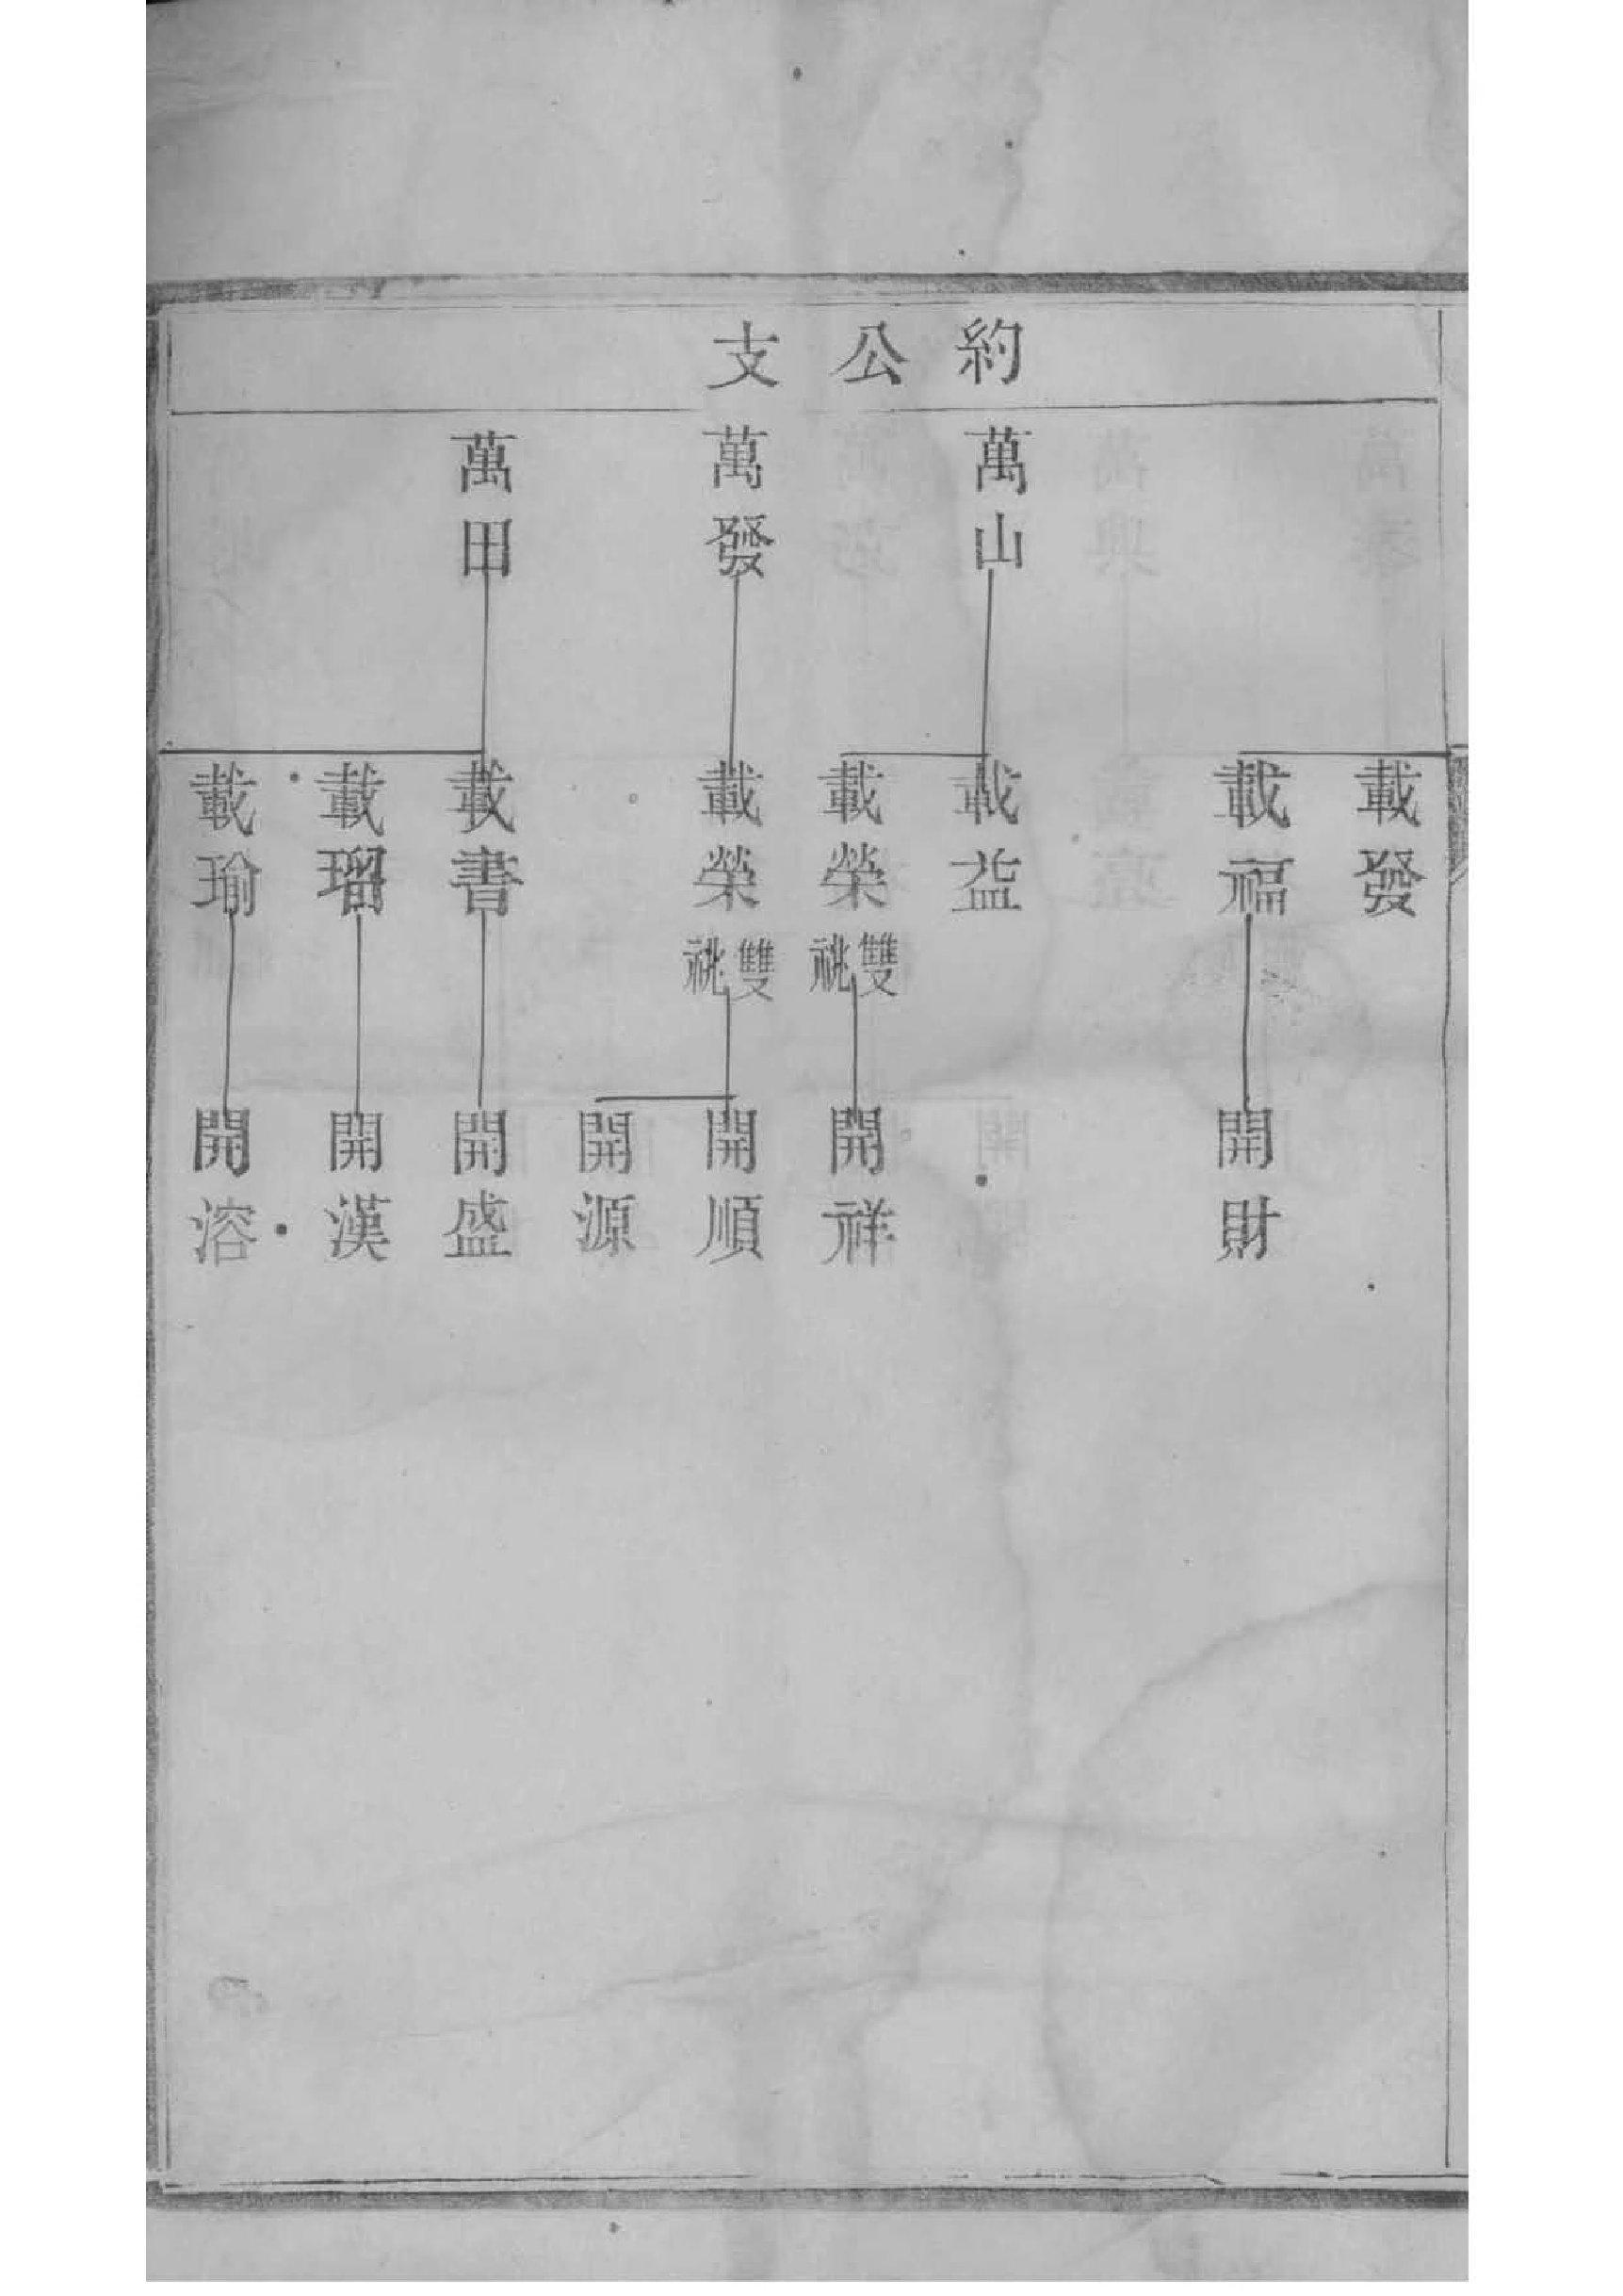 約公支
萬山
萬發
萬田
載發
載福
載益
載榮雙祧
載榮雙祧
載書
載瑠
載瑜
開財
開祥
開順
開源
開盛
開漢
開溶